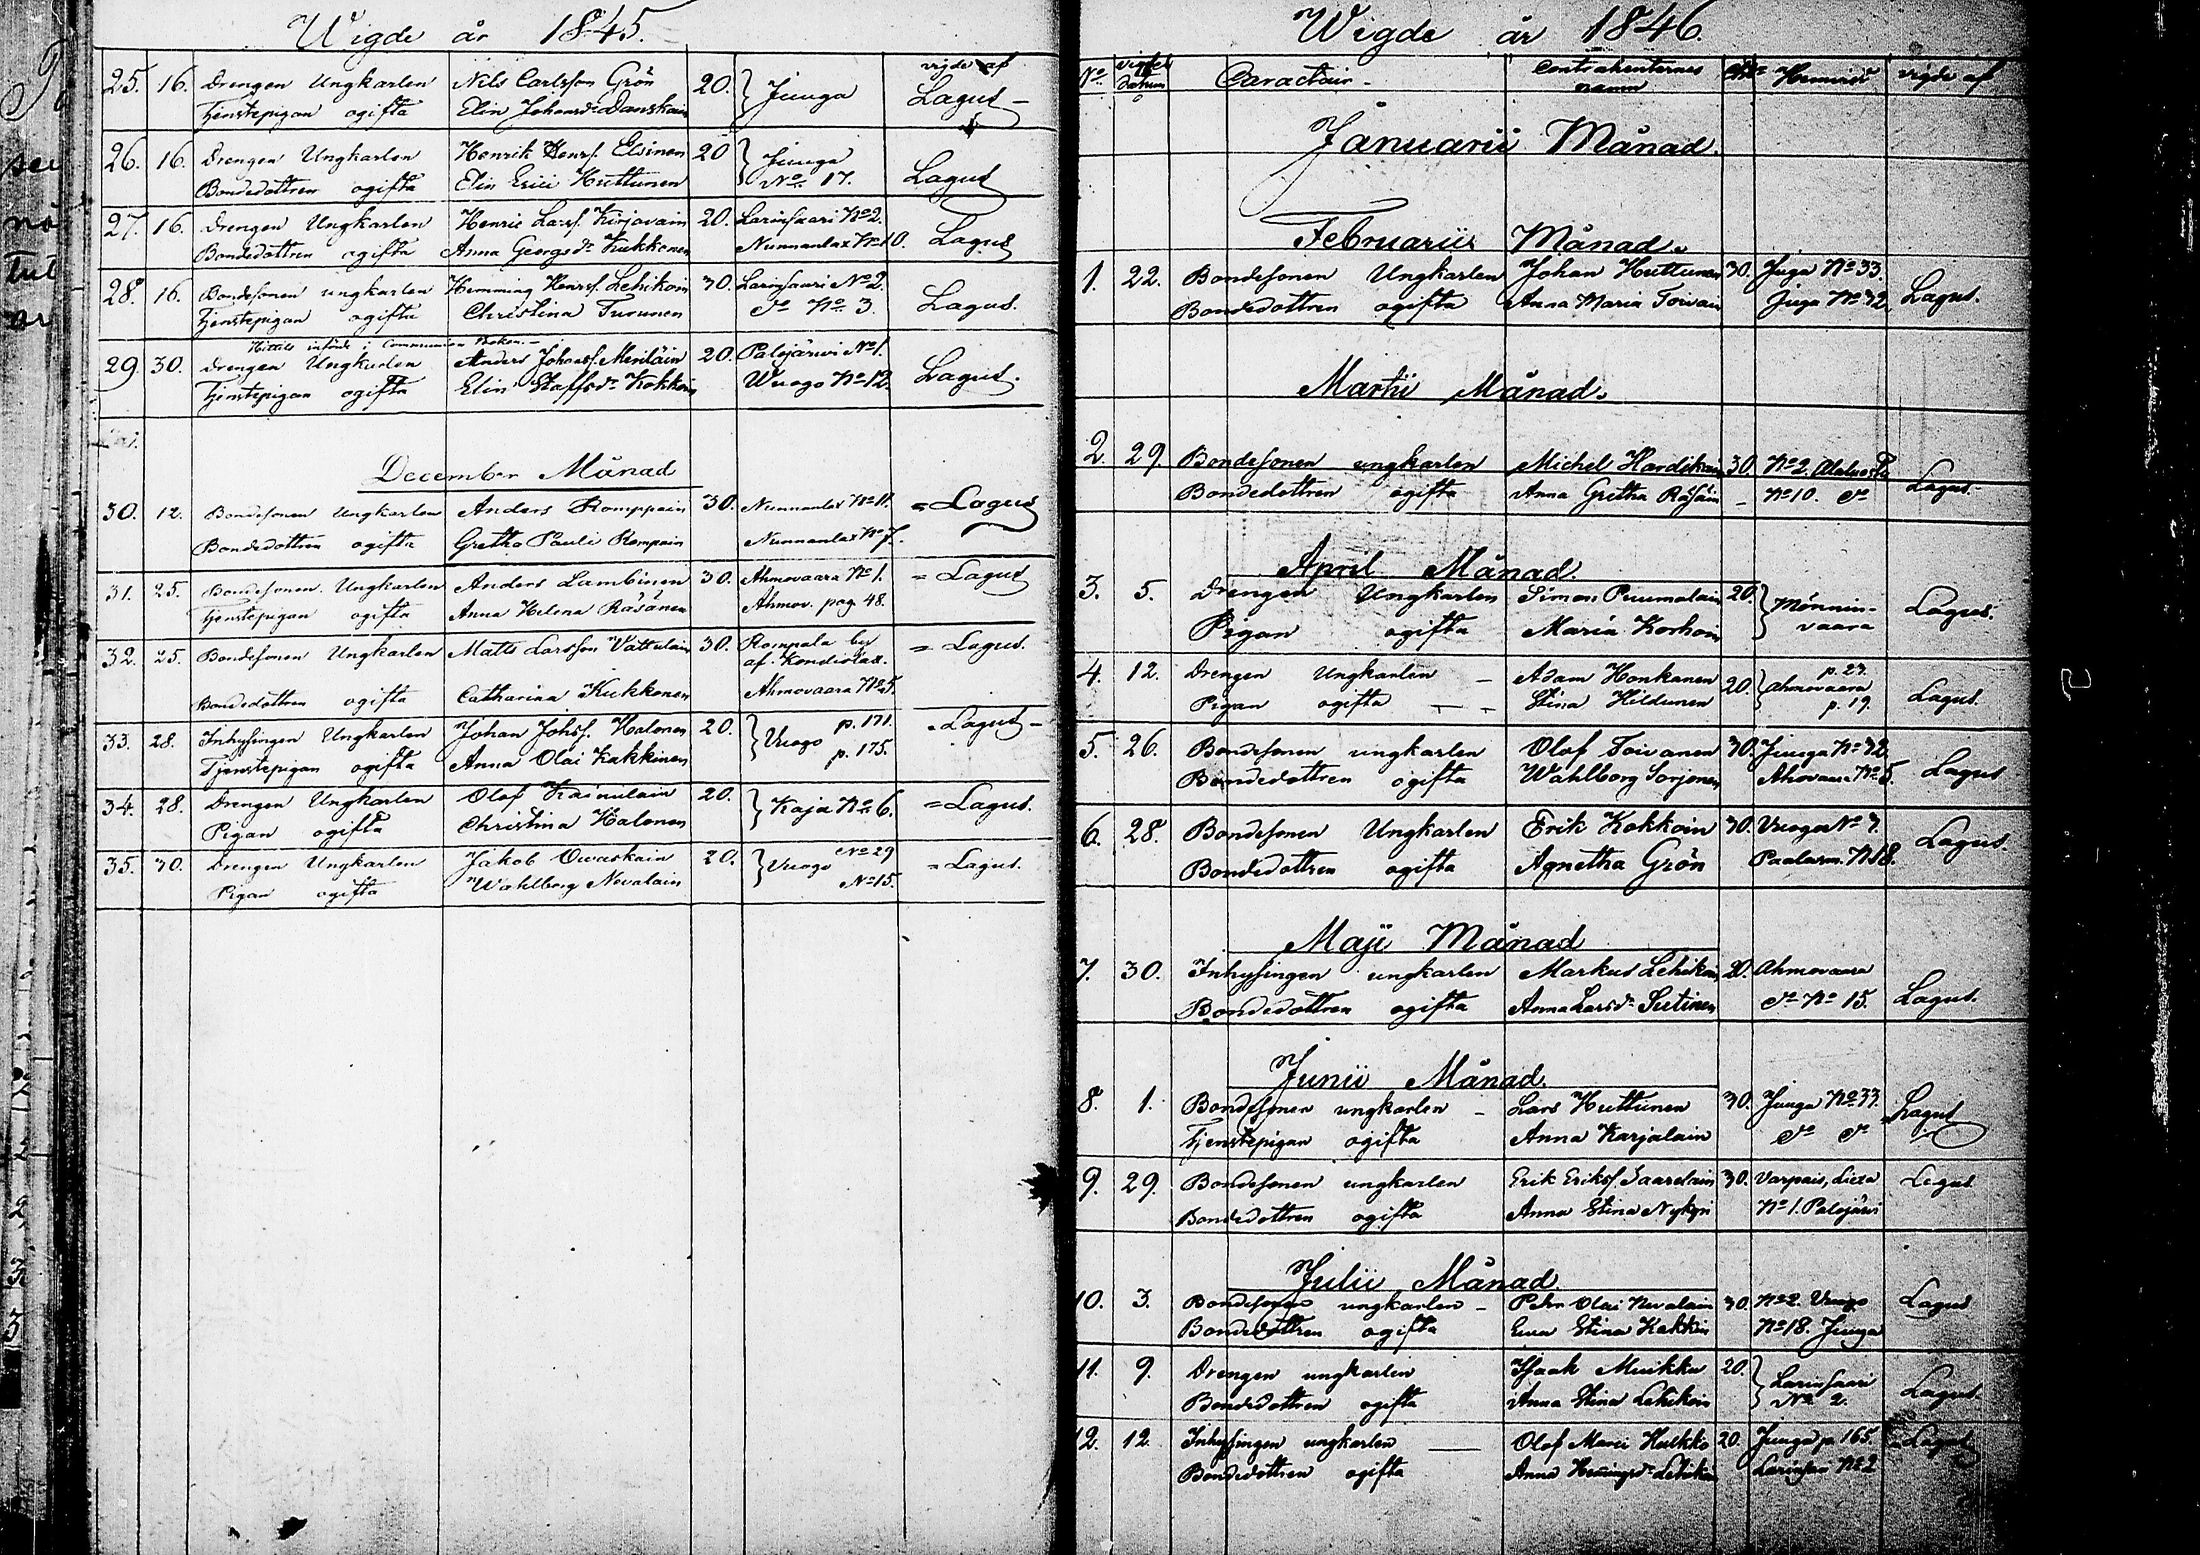 Wigde år 1845.
vigde af
25. 16. Drengen Ungkarlen Nils Carlsson Grön 20. Juuga Lagus
Tjenstepigan ogifta Elin Johansdr Danskain
26. 16. Drengen Ungkarlen Henrik Henrs. Elsinen 20 Juuga Lagus
Bondedottren ogifta Elin Erici Huttunen No 17.
27. 16. Drengen Ungkarlen Henric Larss. Kirjavain 20. Larinsaari No 2. Lagus
Bondedottren ogifta Anna Georgsdr Kukkonen Nunnanlax No 10.
28. 16. Bondesonen ungkarlen Hemming Henrss. Lehikoin 30. Larinsaari No 2. Lagus.
Tjenstepigan ogifta Christina Turunen do No 3.
Hittils införde i Communion Boken.
29. 30. Drengen Ungkarlen Anders Johanss. Meriläin 20. Palojärwi No 1. Lagus.
Tjenstepigan ogifta Elin Staffsdr Kokkoin Wuogo No 12.
December Månad
30. 12. Bondesonen Ungkarlen Anders Romppain 30. Nunnanlax No 11. = Lagus
Bondedottren ogifta Gretha Pauli Rompain Nunnanlax No 7.
31. 25. Bondesonen Ungkarlen Anders Lambinen 30. Ahmovaara No 1. = Lagus
Tjenstepigan ogifta Anna Helena Räsänen Ahmov. pag 48.
32. 25. Bondesonen Ungkarlen Matts Larsson Vattulain 30. Rompala by = Lagus.
af Kondiolax.
Bondedottren ogifta Catharina Kukkonen Ahmovaara No 5.
33. 28. Inhysingen Ungkarlen Johan Johss. Halonen 20. Vuogo p. 171. = Lagus
Tjenstepigan ogifta Anna Olai Kakkinen p. 175.
34. 28. Drengen Ungkarlen Olof Kainulain 20. Kaja No 6. = Lagus.
Pigan ogifta Christina Halonen
35. 30. Drengen Ungkarlen Jakob Owaskain 20. Vuogo No 29 = Lagus.
Pigan ogifta Wahlborg Nevalain No 15.
Wigde år 1846.
No vigsel datum Caractair Contrahenternes namn Hemvist vigde af
Januarii Månad.
Februarii Månad.
1. 22. Bondesonen Ungkarlen Johan Huttunen 30. Juga No 33. Lagus.
Bondedottren ogifta Anna Maria Toivain Juga No 32
Martii Månad.
2. 29. Bondesonen ungkarlen Michel Hardikain 30. No 2. Lagus
Bondedottren ogifta Anna Gretha Räsäin No 10. do
April Månad.
3. 5. Drengen Ungkarlen Simon Puumalain 20. Mönnin- Lagus.
Pigan ogifta Maria Korhoin vaara
4. 12. Drengen Ungkarlen Adam Honkanen 20. p. 27. Ahmovaara Lagus.
Pigan ogifta Stina Hildunen p. 19.
5. 26. Bondesonen ungkarlen Olof Toivanen 30. Juuga No 32 Lagus
Bondedottren ogifta Wahlborg Sorjonen Ahmovaara No 5.
6. 28. Bondesonen Ungkarlen Erik Kokkoin 30. Vuogo No 7. Lagus
Bondedottren ogifta Agnetha Grön Paalasm. N 18.
Maji Månad
7. 30. Inhysingen ungkarlen Markus Lehikoin 20. Ahmovaara Lagus.
Bondedottren ogifta Anna Larsdr Sutinen do No 15.
Junii Månad.
8. 1. Bondesonen ungkarlen Lars Huttunen 30. Juuga No 33. Lagus
Tjenstepigan ogifta Anna Karjalain do do
9. 29. Bondesonen ungkarlen Erik Erikss. Saarelain 30. Varpais, Liexa Lagus
Bondedottren ogifta Anna Stina Nykyri No 1. Palojärvi
Julii Månad.
10. 3. Bondesonen ungkarlen Pehr Olai Nevalain 30. No 2. Vuogo Lagus
Bondedottren ogifta Ewa Stina Kakkin No 18. Juuga
11. 9. Drengen ungkarlen Isaak Muikku 20. Larinsaari Lagus.
Bondedottren ogifta Anna Stina Lehikoin No 2.
12. 12. Inhysingen ungkarlen Olof Marci Hulkko 20. Juuga p. 165. Lagus
Bondedottren ogifta Anna Hemingsdr Lehikoin Larinsari No 2